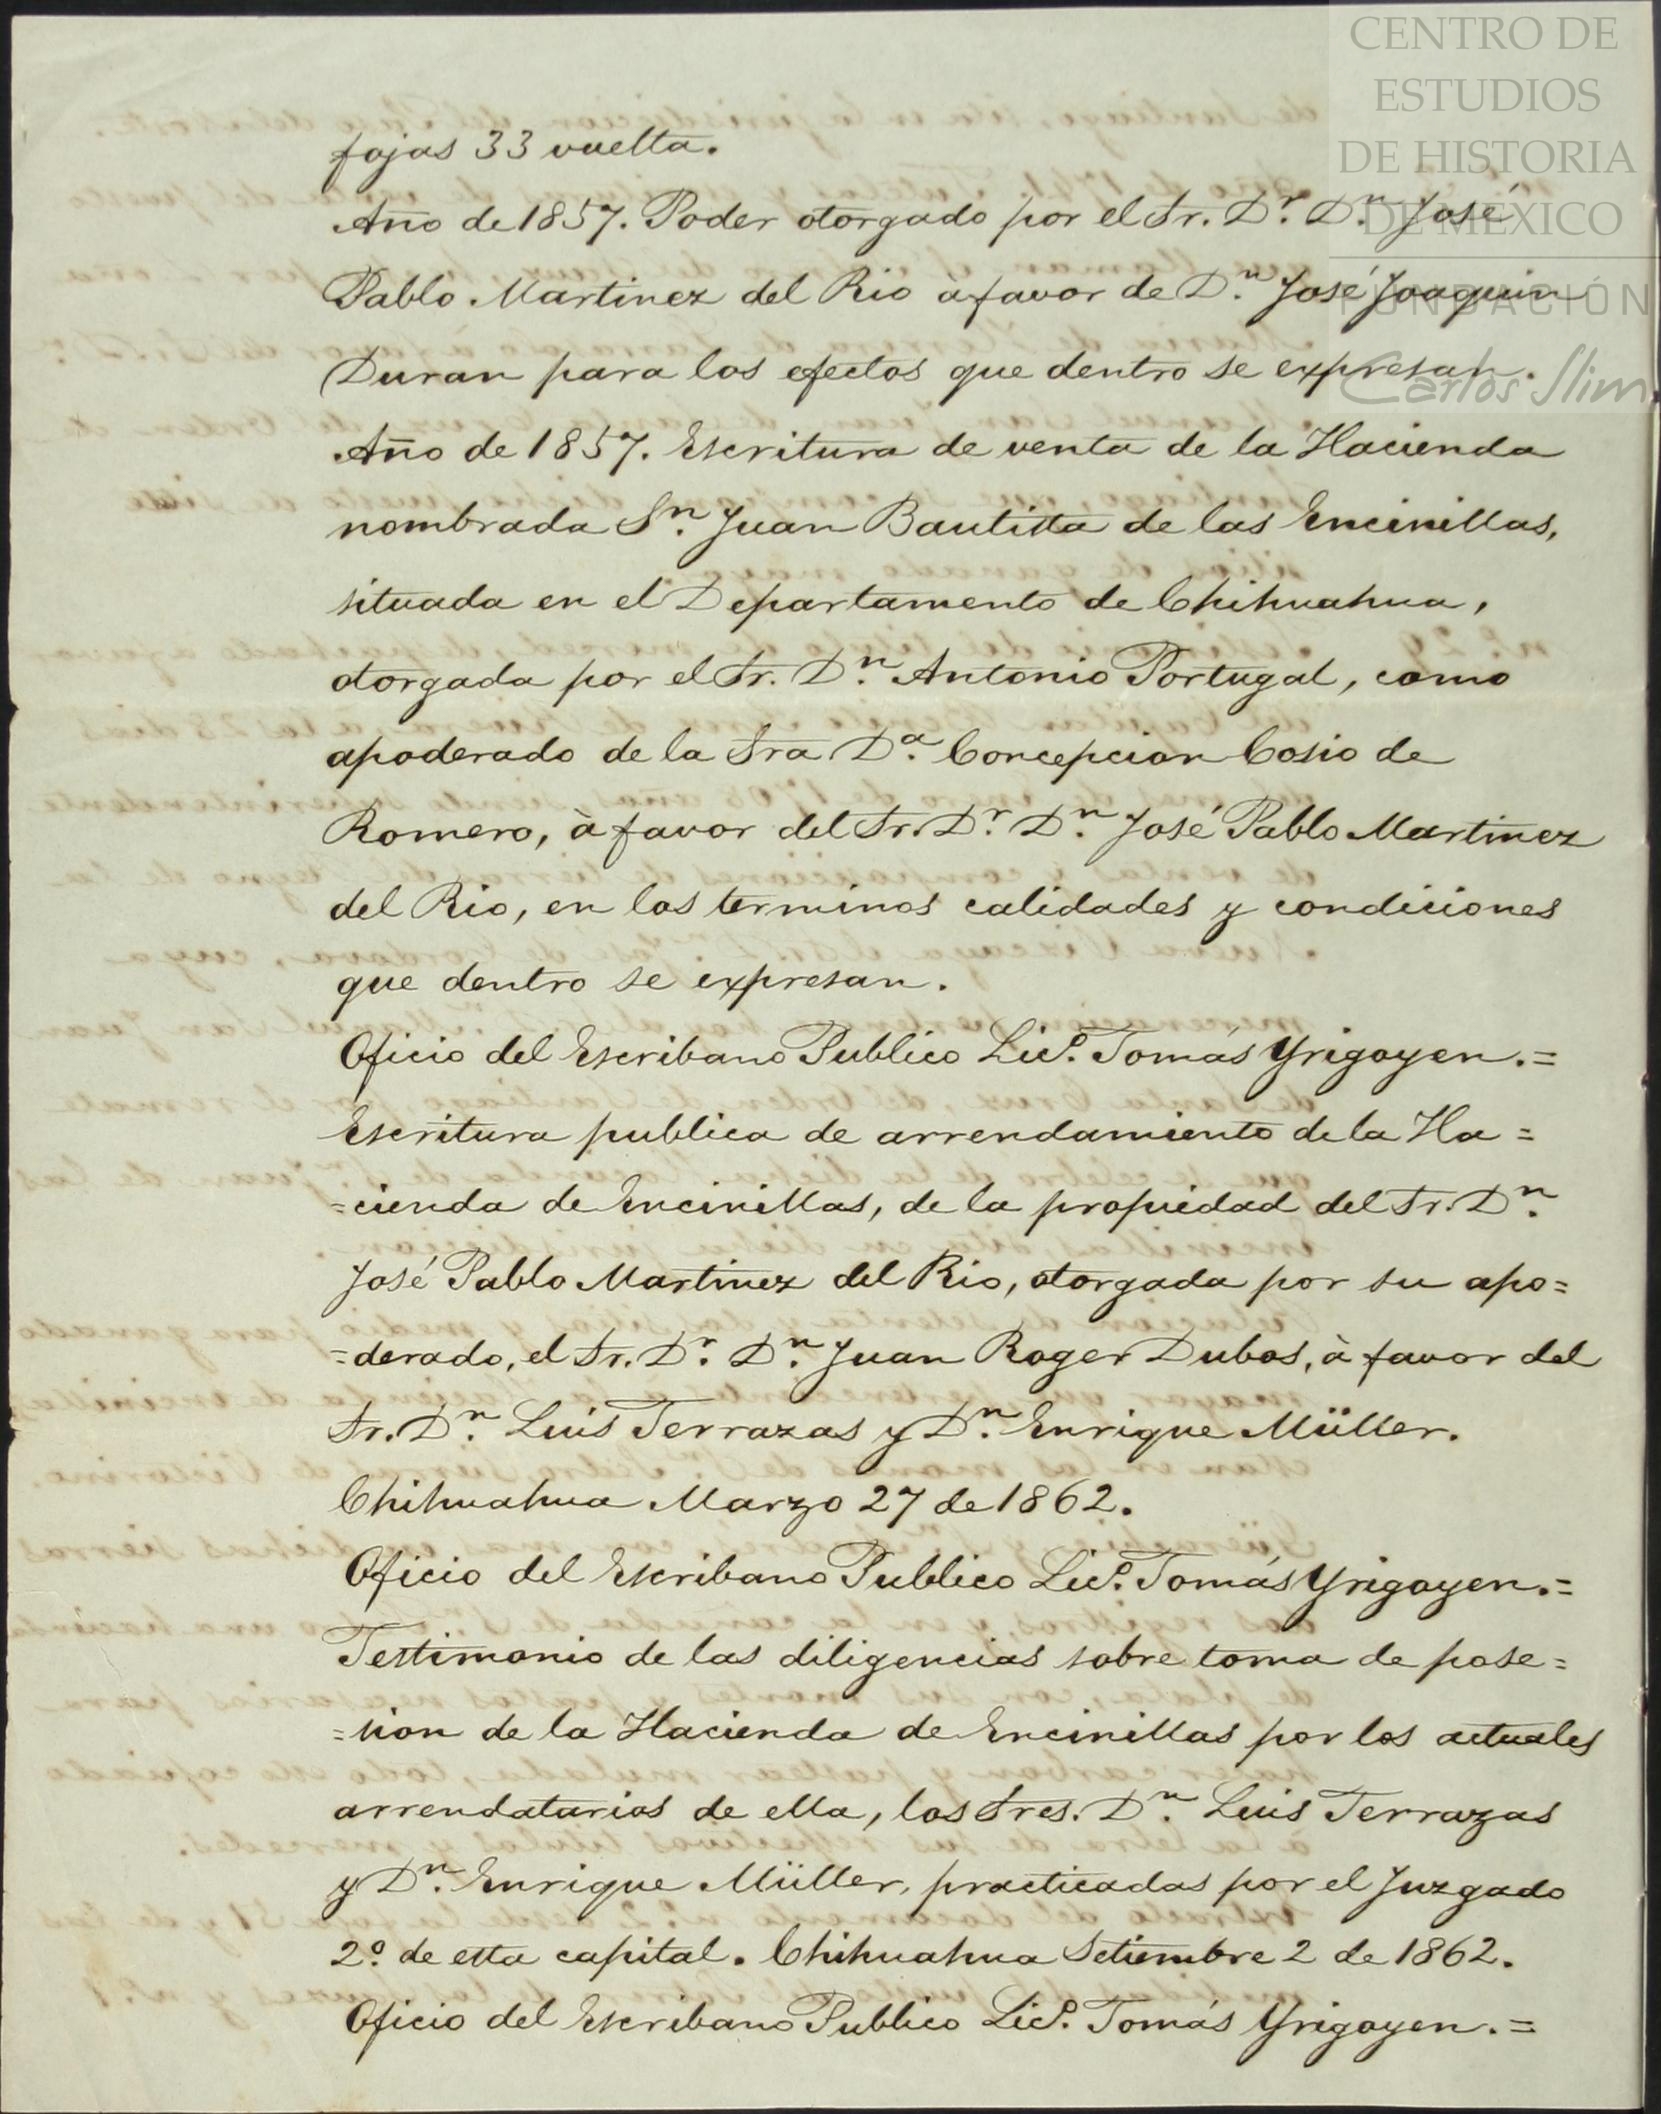 CENTRO DE
ESTUDIOS
DE HISTORIA
DE MÉXICO
FUNDACIÓN
Carlos Slim
fojas 33 vuelta.
Año de 1857. Poder otorgado por el Sr. D.r D.n José
Pablo Martinez del Rio à favor de D.n José Joaquin
Duran para los efectos que dentro se expresan.
Año de 1857. Escritura de venta de la Hacienda
nombrada S.n Juan Bautista de las Encinillas,
situada en el Departamento de Chihuahua,
otorgada por el Sr. D.n Antonio Portugal, como
apoderado de la Sra D.a Concepcion Cosio de
Romero, à favor del Sr. D.r D.n José Pablo Martinez
del Rio, en los terminos calidades y condiciones
que dentro se expresan.
Oficio del Escribano Publico Lic.o Tomás Yrigoyen.=
Escritura publica de arrendamiento de la Ha=
=cienda de Encinillas, de la propiedad del Sr. D.n
José Pablo Martinez del Rio, otorgada por su apo=
=derado, el Sr. D.r D.n Juan Roger Dubos, à favor del
Sr. D.n Luis Terrazas y D.n Enrique Müller.
Chihuahua Marzo 27 de 1862.
Oficio del Escribano Publico Lic.o Tomás Yrigoyen.=
Testimonio de las diligencias sobre toma de pose=
=sion de la Hacienda de Encinillas por los actuales
arrendatarios de ella, los Sres. D.n Luis Terrazas
y D.n Enrique Müller, practicadas por el Juzgado
2.o de esta capital. Chihuahua Setiembre 2 de 1862.
Oficio del Escribano Publico Lic.o Tomás Yrigoyen.=